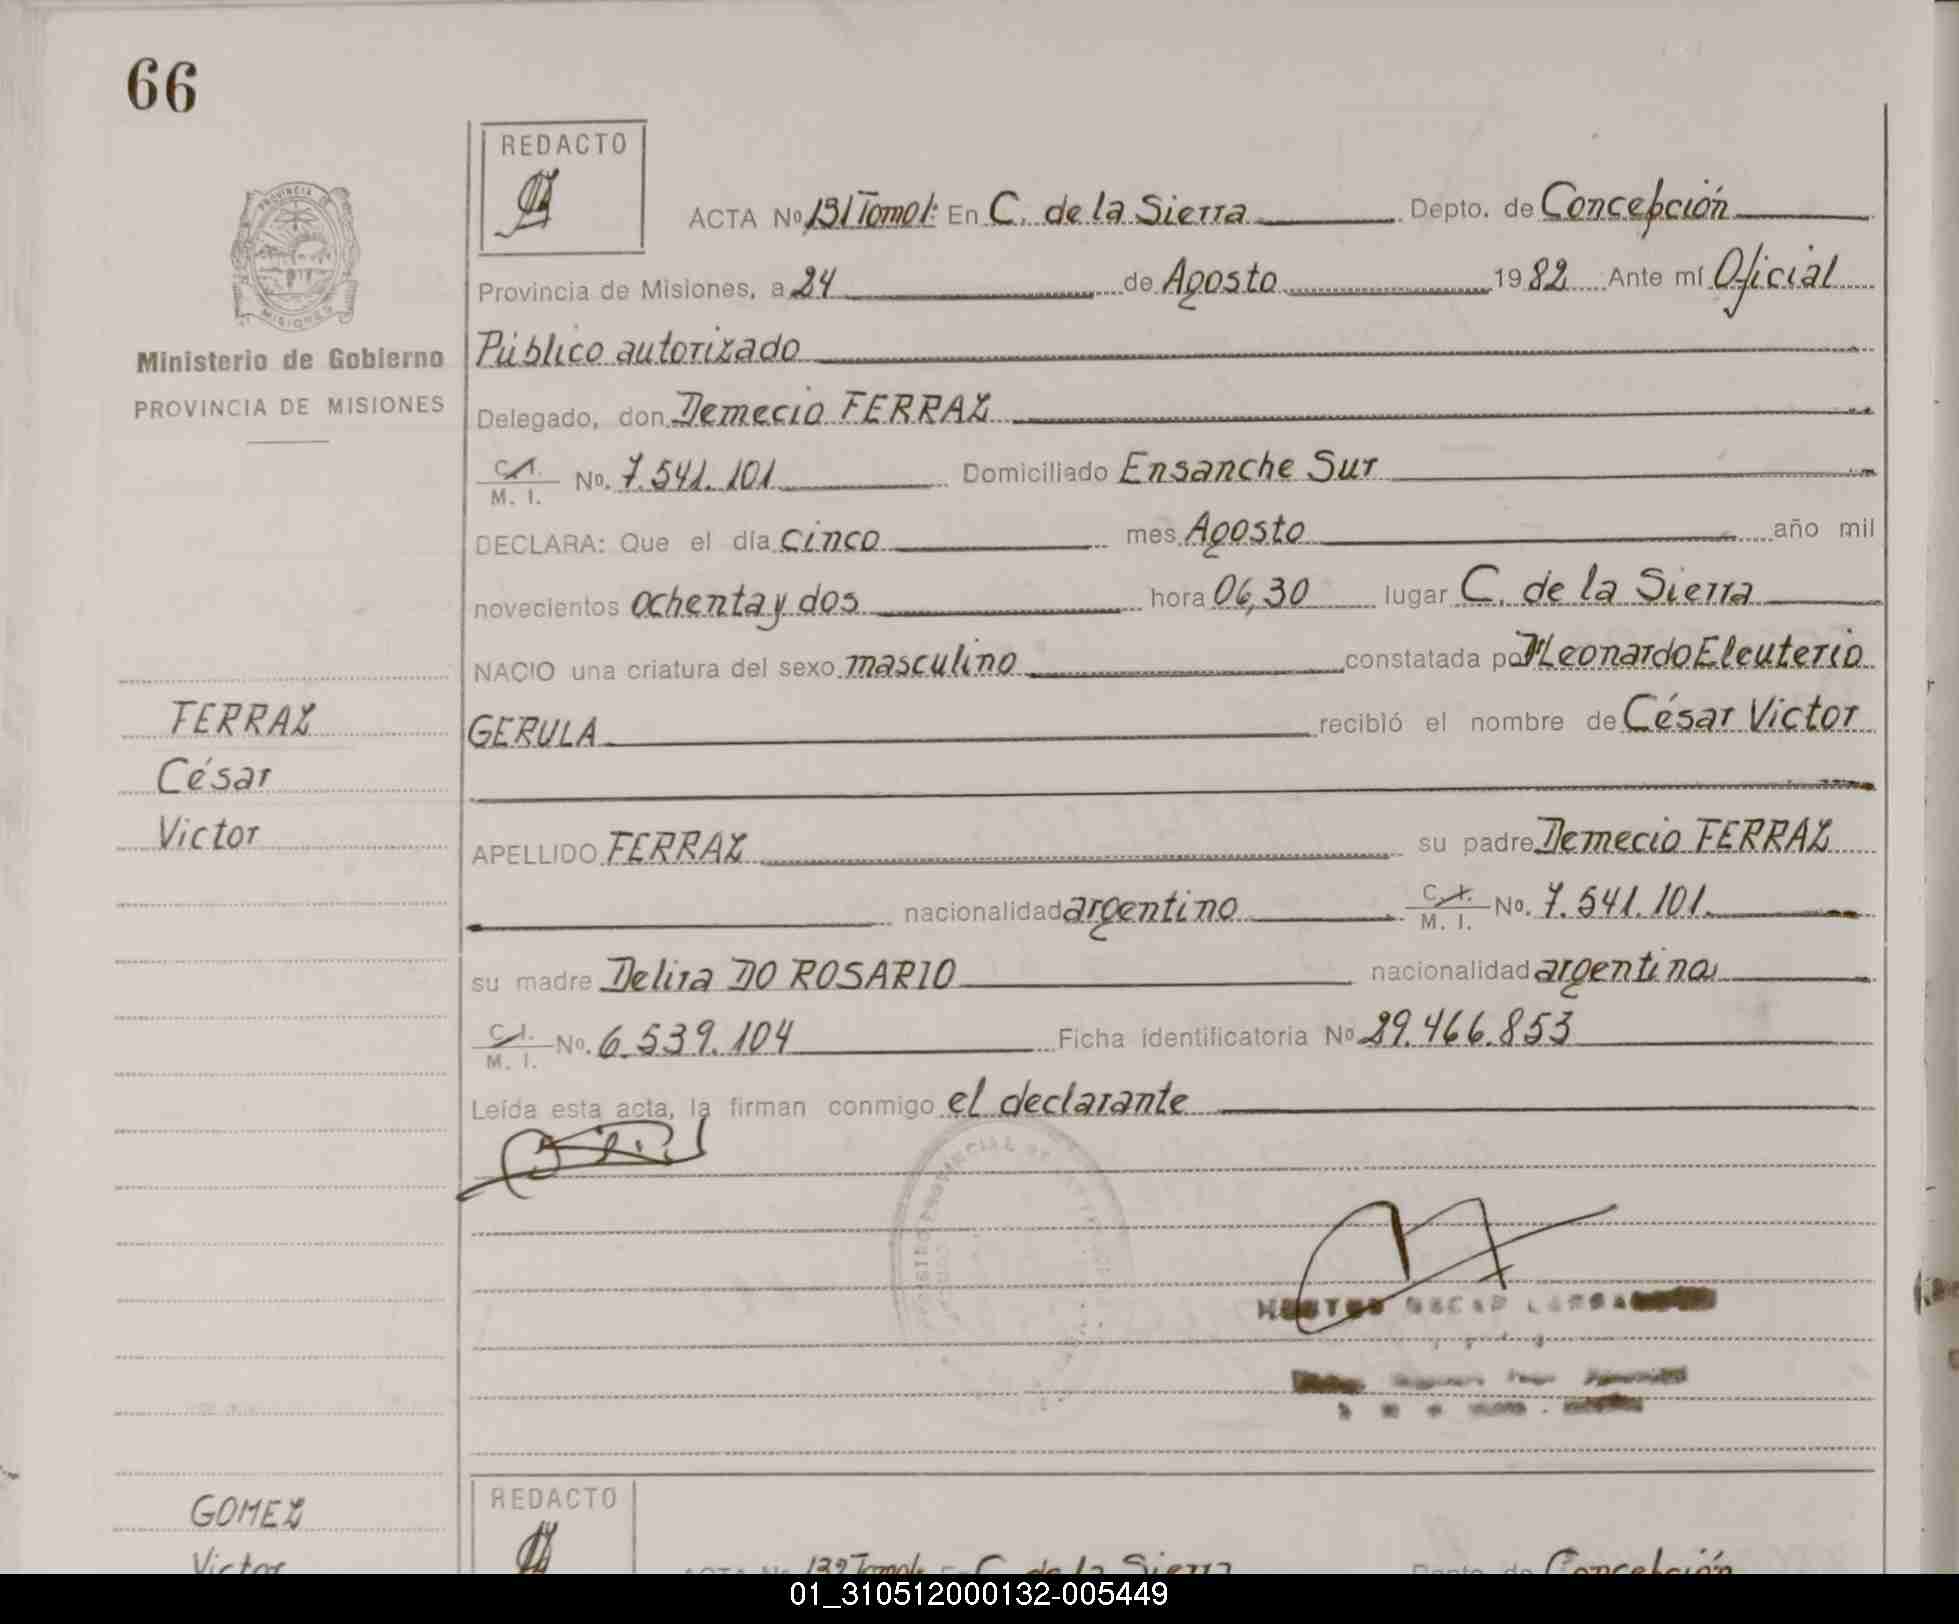 66
REDACTO
ACTA Nº 131 Tomo 1: En C. de la Sierra Depto. de Concepción
Provincia de Misiones, a 24 de Agosto 1982 Ante mí Oficial
Ministerio de Gobierno
PROVINCIA DE MISIONES
Público autorizado
Delegado, don Demecio FERRAZ
C.I. M. I. No. 7.541.101 Domiciliado Ensanche Sur
DECLARA: Que el día cinco mes Agosto año mil
novecientos ochenta y dos hora 06,30 lugar C. de la Sierra
NACIO una criatura del sexo masculino constatada por Leonardo Eleuterio
FERRAZ
César
Victor
GERULA recibió el nombre de César Victor
APELLIDO FERRAZ su padre Demecio FERRAZ
nacionalidad argentino C.I. M. I. No. 7.541.101
su madre Delira DO ROSARIO nacionalidad argentina
C.I. M. I. No. 6.539.104 Ficha identificatoria Nº 29.466.853
Leída esta acta, la firman conmigo el declarante
GOMEZ
Victor
REDACTO
ACTA Nº 132 Tomo 1: En C. de la Sierra Depto. de Concepción
01_310512000132-005449